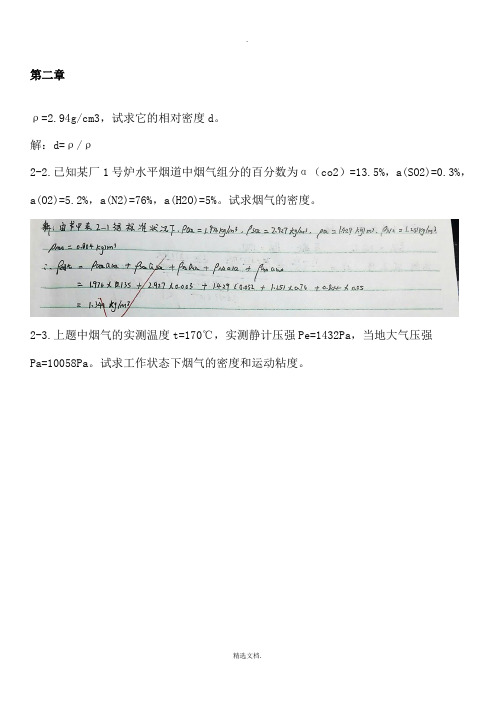 第二章
ρ=2.94g/cm3，试求它的相对密度d。
解：d=ρ/ρ
2-2.已知某厂1号炉水平烟道中烟气组分的百分数为α（co2）=13.5%，a(SO2)=0.3%，
a(O2)=5.2%，a(N2)=76%，a(H2O)=5%。试求烟气的密度。
解：由书中表2-1得标准状况下，ρCO2=1.976kg/m³，ρSO2=2.927kg/m³，ρO2=1.429kg/m³，ρN2=1.251kg/m³
ρH2O=0.804kg/m³
=1.976×0.135+2.927×0.003+1.429×0.052+1.251×0.76+0.804×0.05
=1.344kg/m³
2-3.上题中烟气的实测温度t=170℃，实测静计压强Pe=1432Pa，当地大气压强
Pa=10058Pa。试求工作状态下烟气的密度和运动粘度。
精选文档.